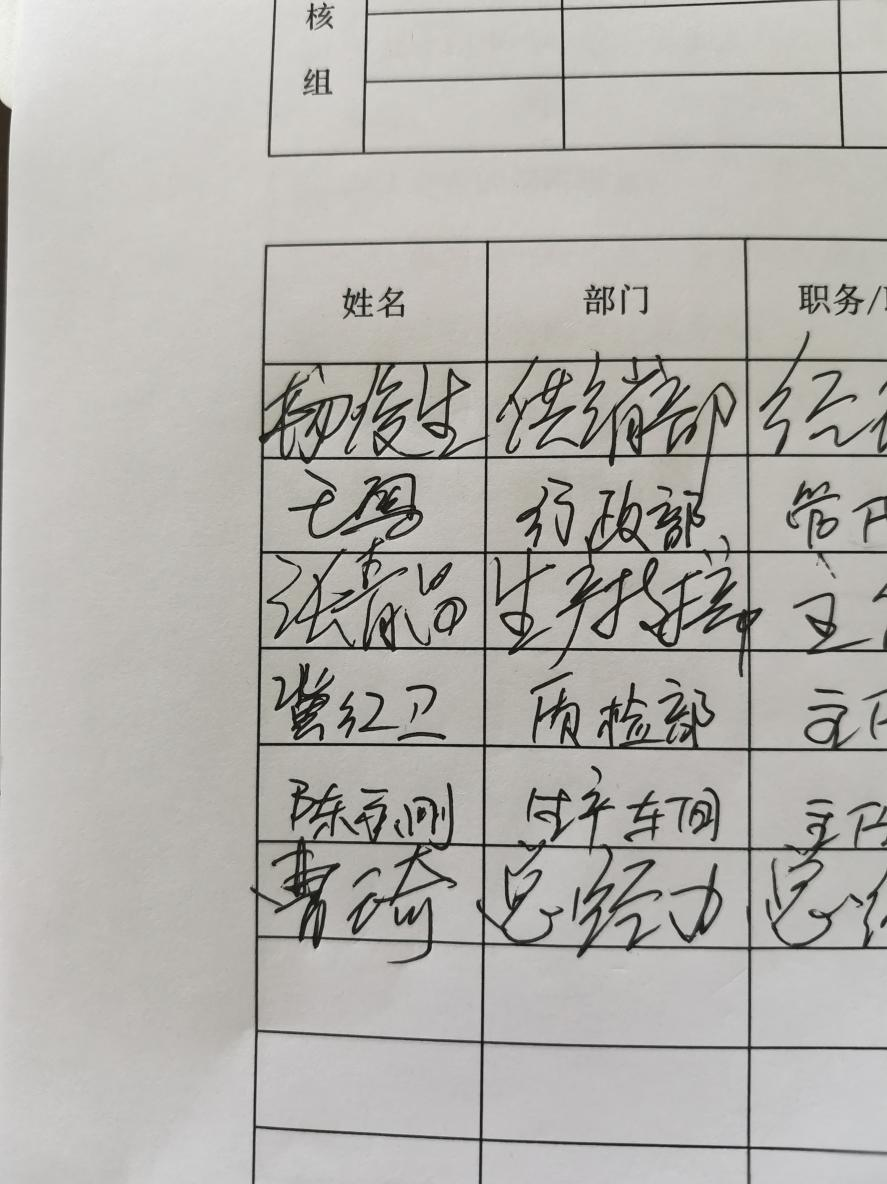 核
组
姓名 部门 职务/
杨俊生 供销部 经
王 行政部 管
张青 生产技术部 主
冀红卫 质检部 主
陈 刚 生产车间 主
曹琦 总经办 总经